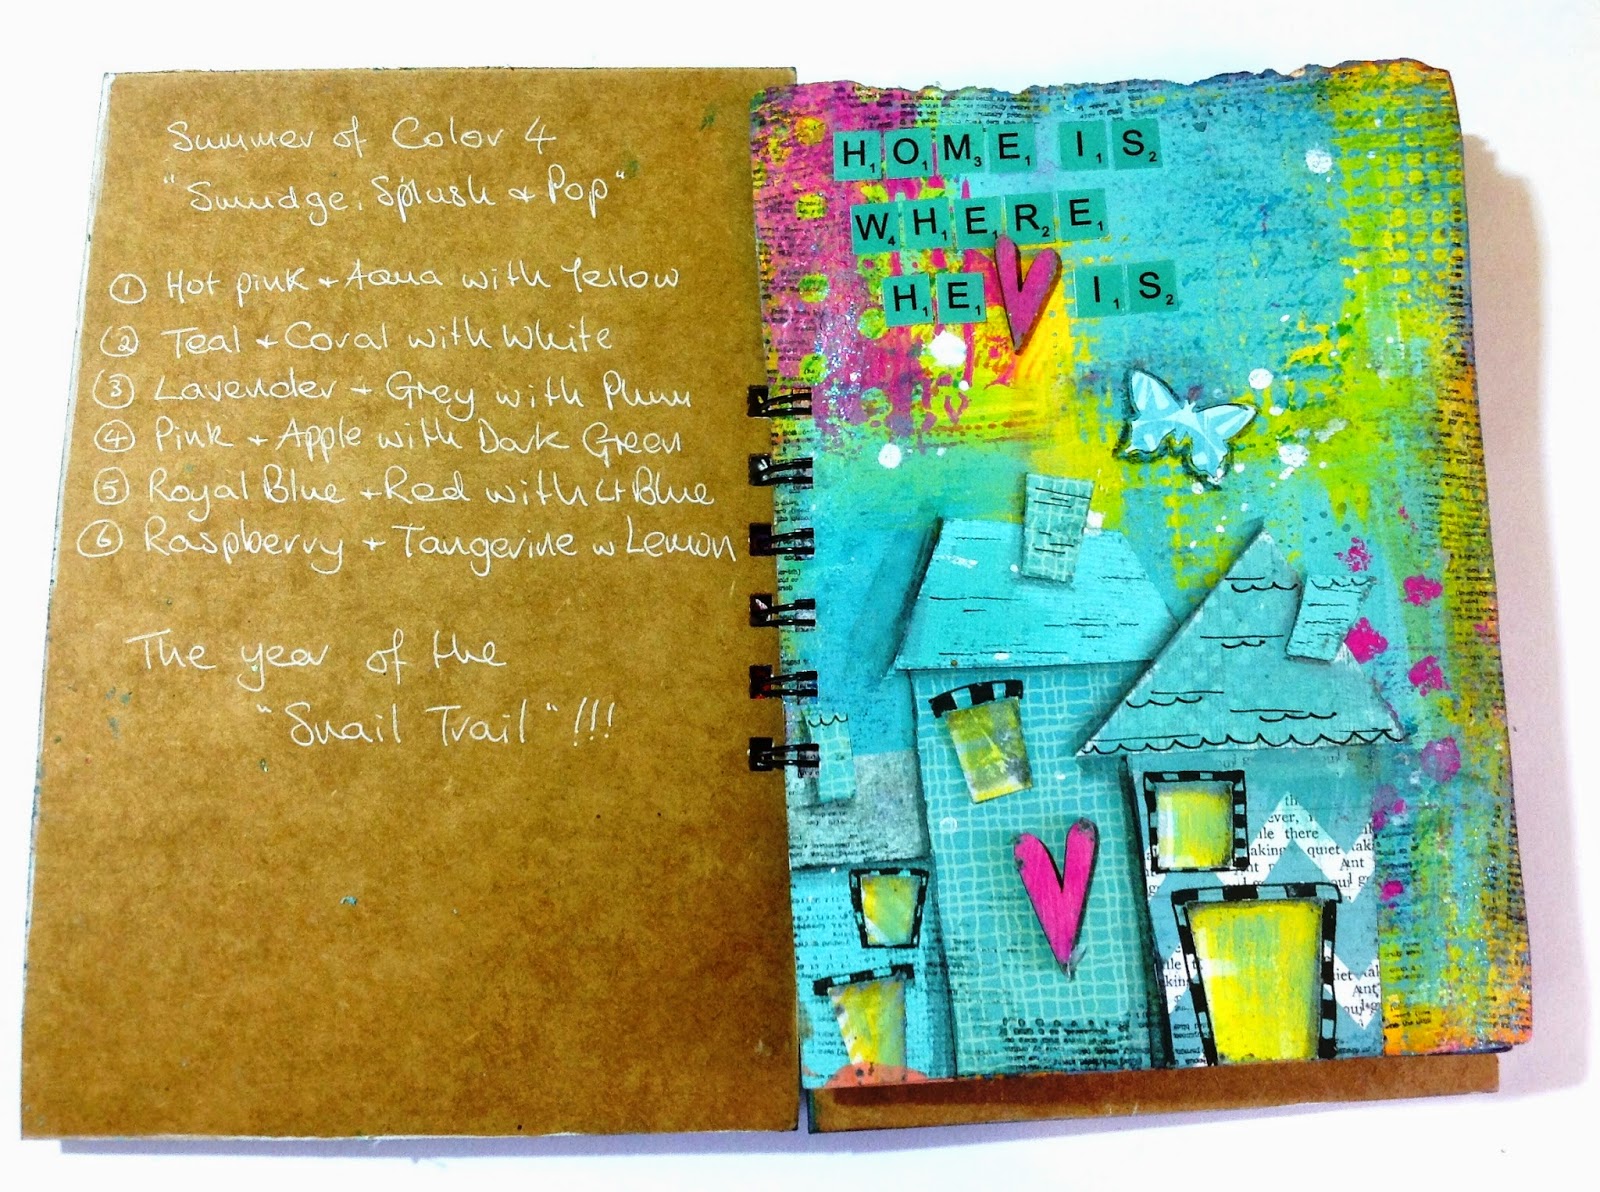 Summer of Color 4
"Smudge, Splush & Pop"
① Hot pink + Aqua with Yellow
② Teal + Coral with White
③ Lavender + Grey with Plum
④ Pink + Apple with Dark Green
⑤ Royal Blue + Red with Lt Blue
⑥ Raspberry + Tangerine w Lemon
The year of the
"Snail Trail"!!!
H1 O1 M3 E1 I1 S2
W4 H1 E1 R2 E1
H1 E1 I1 S2
ever,
ile there
aking quiet
Ant